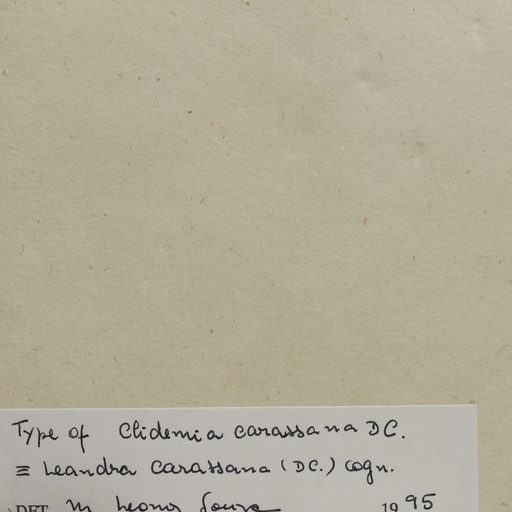 Type of Clidemia carassana DC.
≡ Leandra carassana (DC.) Cogn.
DET. M. Leonor Souza 1995